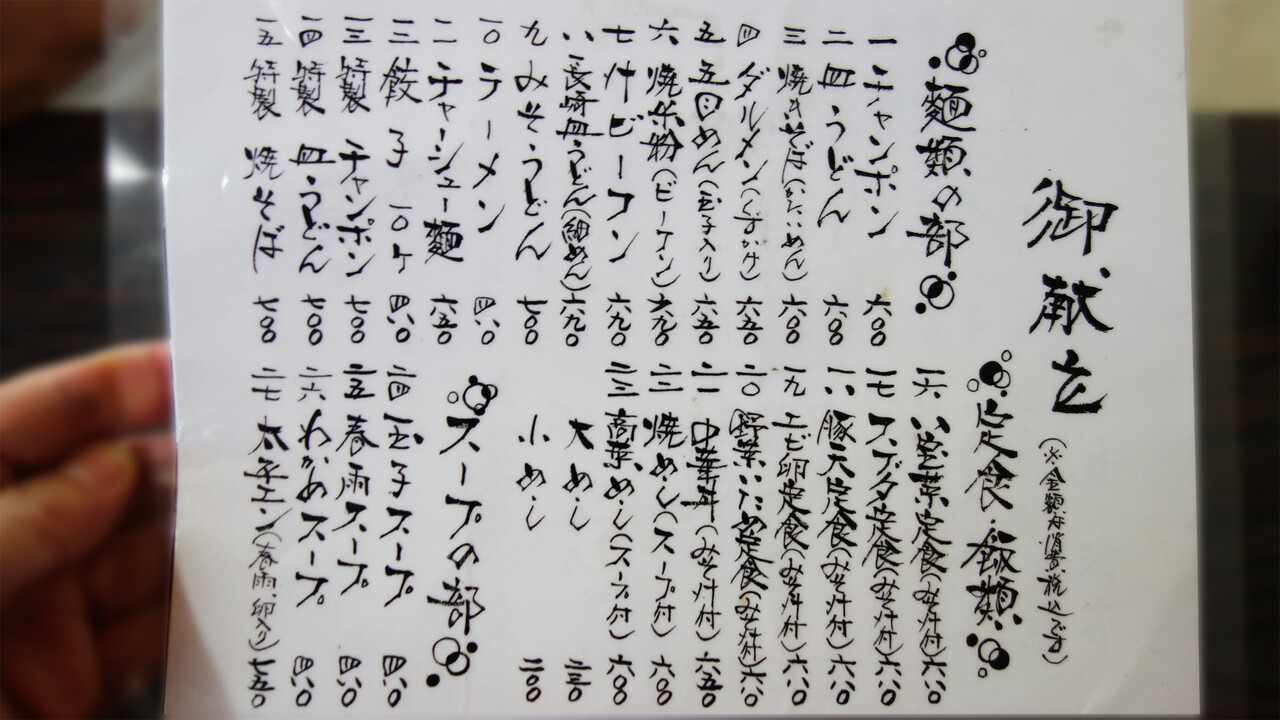 御献立
(※金額は消費税込です)
麺類の部
一 チャンポン 六〇〇
二 皿うどん 六〇〇
三 焼きそば(ほそいめん) 六〇〇
四 ダルメン(くずかけ) 六五〇
五 五目めん(玉子入り) 六五〇
六 焼米粉(ビーフン) 六九〇
七 汁ビーフン 六九〇
八 長崎皿うどん(細めん) 六九〇
九 みそうどん 七〇〇
一〇 ラーメン 四八〇
一一 チャーシュー麺 六五〇
一二 餃子 一〇ケ 四八〇
一三 特製 チャンポン 七〇〇
一四 特製 皿うどん 七〇〇
一五 特製 焼そば 七〇〇
定食・飯類
一六 八宝菜定食(みそ汁付) 六八〇
一七 スブタ定食(みそ汁付) 六八〇
一八 豚天定食(みそ汁付) 六八〇
一九 エビ卵定食(みそ汁付) 六八〇
二〇 野菜いため定食(みそ汁付) 六八〇
二一 中華丼(みそ汁付) 六五〇
二二 焼めし(スープ付) 六〇〇
二三 高菜めし(スープ付) 六〇〇
大めし 二三〇
小めし 二〇〇
スープの部
二四 玉子スープ 四八〇
二五 春雨スープ 四八〇
二六 わかめスープ 四八〇
二七 太平エン(春雨、卵入り) 七五〇